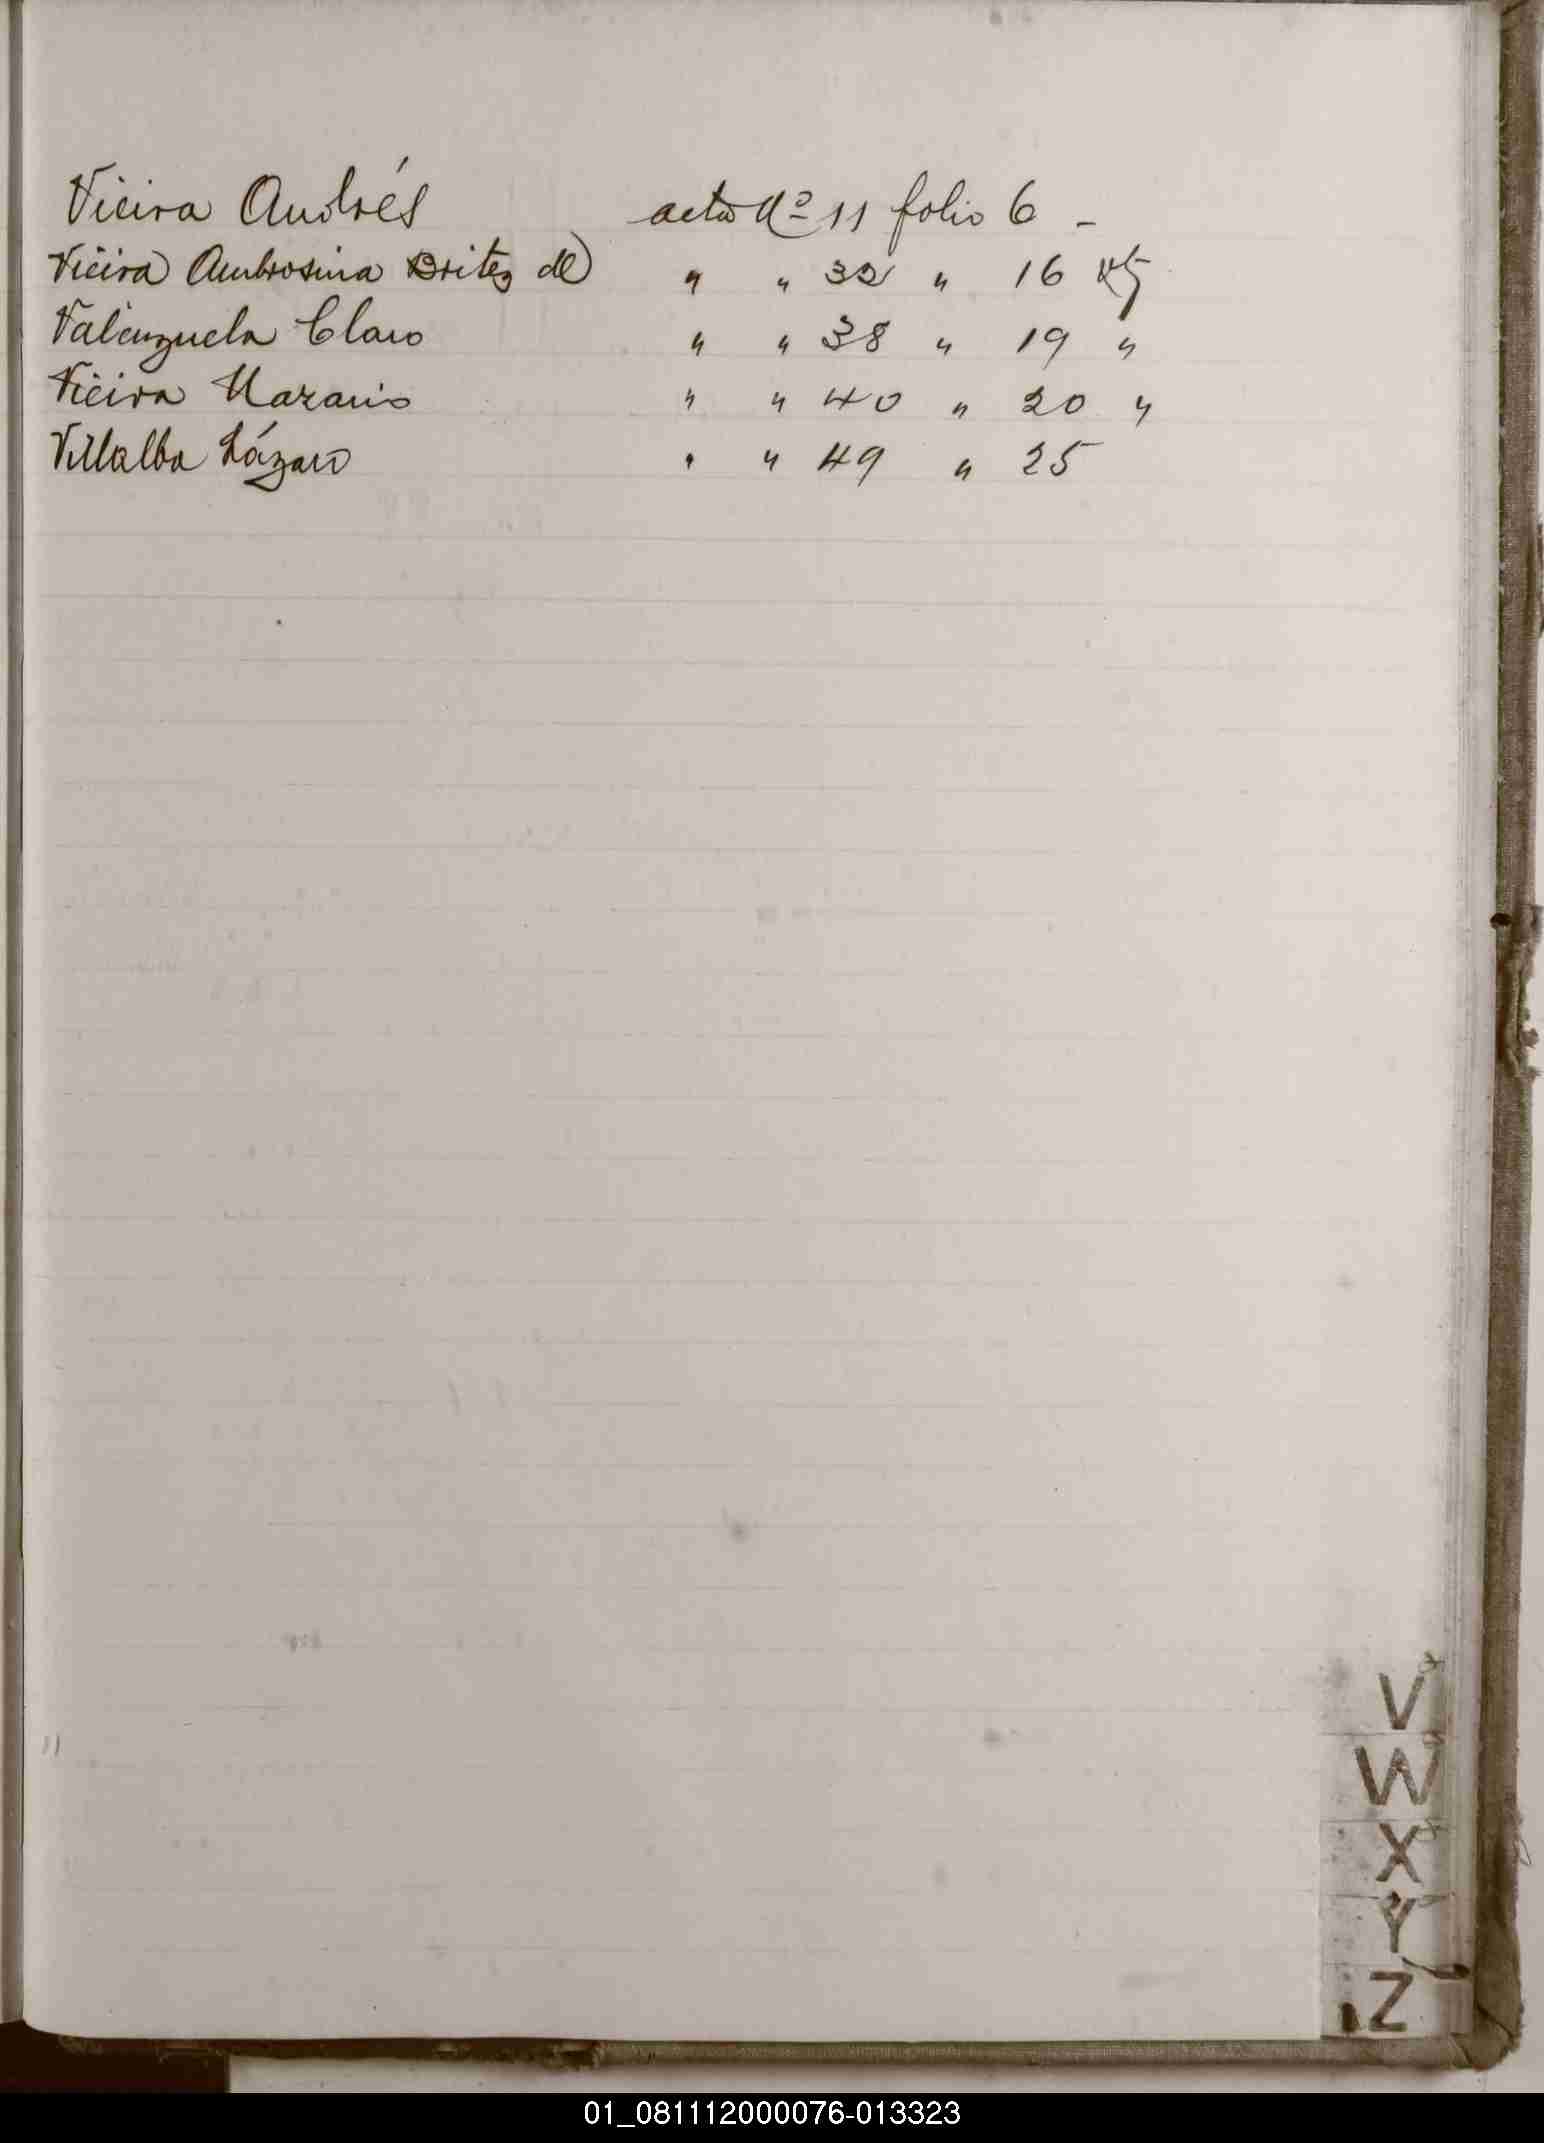 Vieira Andrés acta Nº 11 folio 6 -
Vieira Ambrosina Britez de " " 32 " 16 vta
Valenzuela Claro " " 38 " 19 "
Vieira Nazario " " 40 " 20 "
Villalba Lázaro " " 49 " 25
V
W
X
Y
Z
01_081112000076-013323